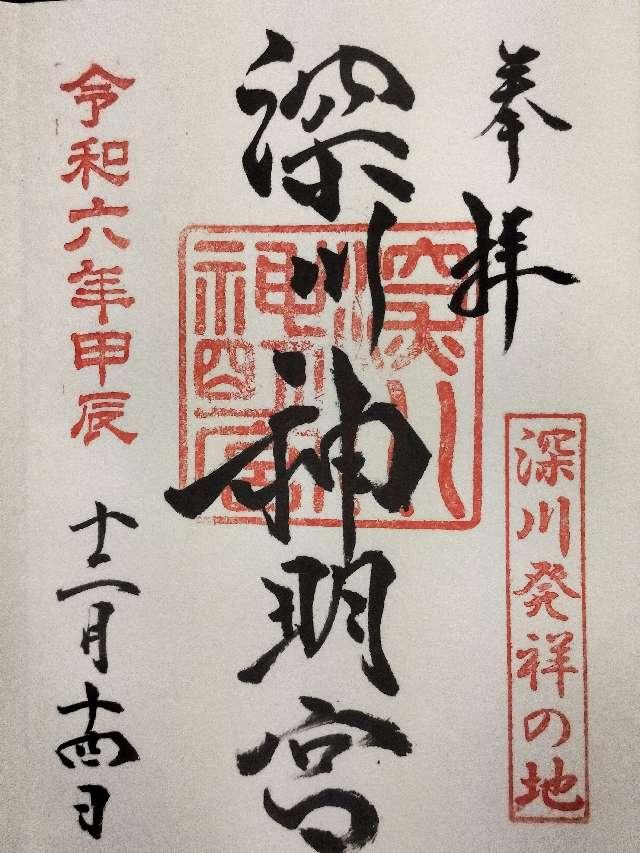 奉拝
深川発祥の地
深川神明宮
令和六年甲辰
十二月十四日